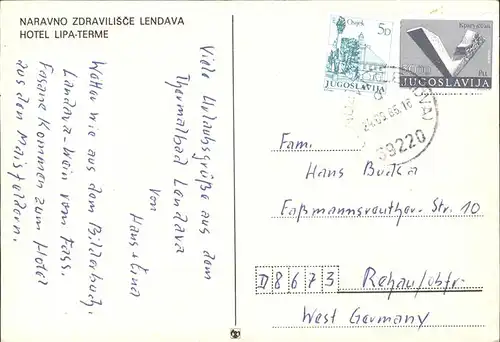 NARAVNO ZDRAVILIŠČE LENDAVA
HOTEL LIPA-TERME
Viele Urlaubsgrüße aus dem
Thermalbad Lendava
von
Hans + Erna
Wetter wie aus dem Bilderbuch,
Landava-Wein vom Fass.
Fasane kommen zum Hotel
aus den Maisfeldern.
Osijek
5D
JUGOSLAVIJA
JUGOSLAVIJA
69220
Fam.
Hans Bucka
Faßmannsreuther-Str. 10
D8673 Rehau/obfr.
West Germany